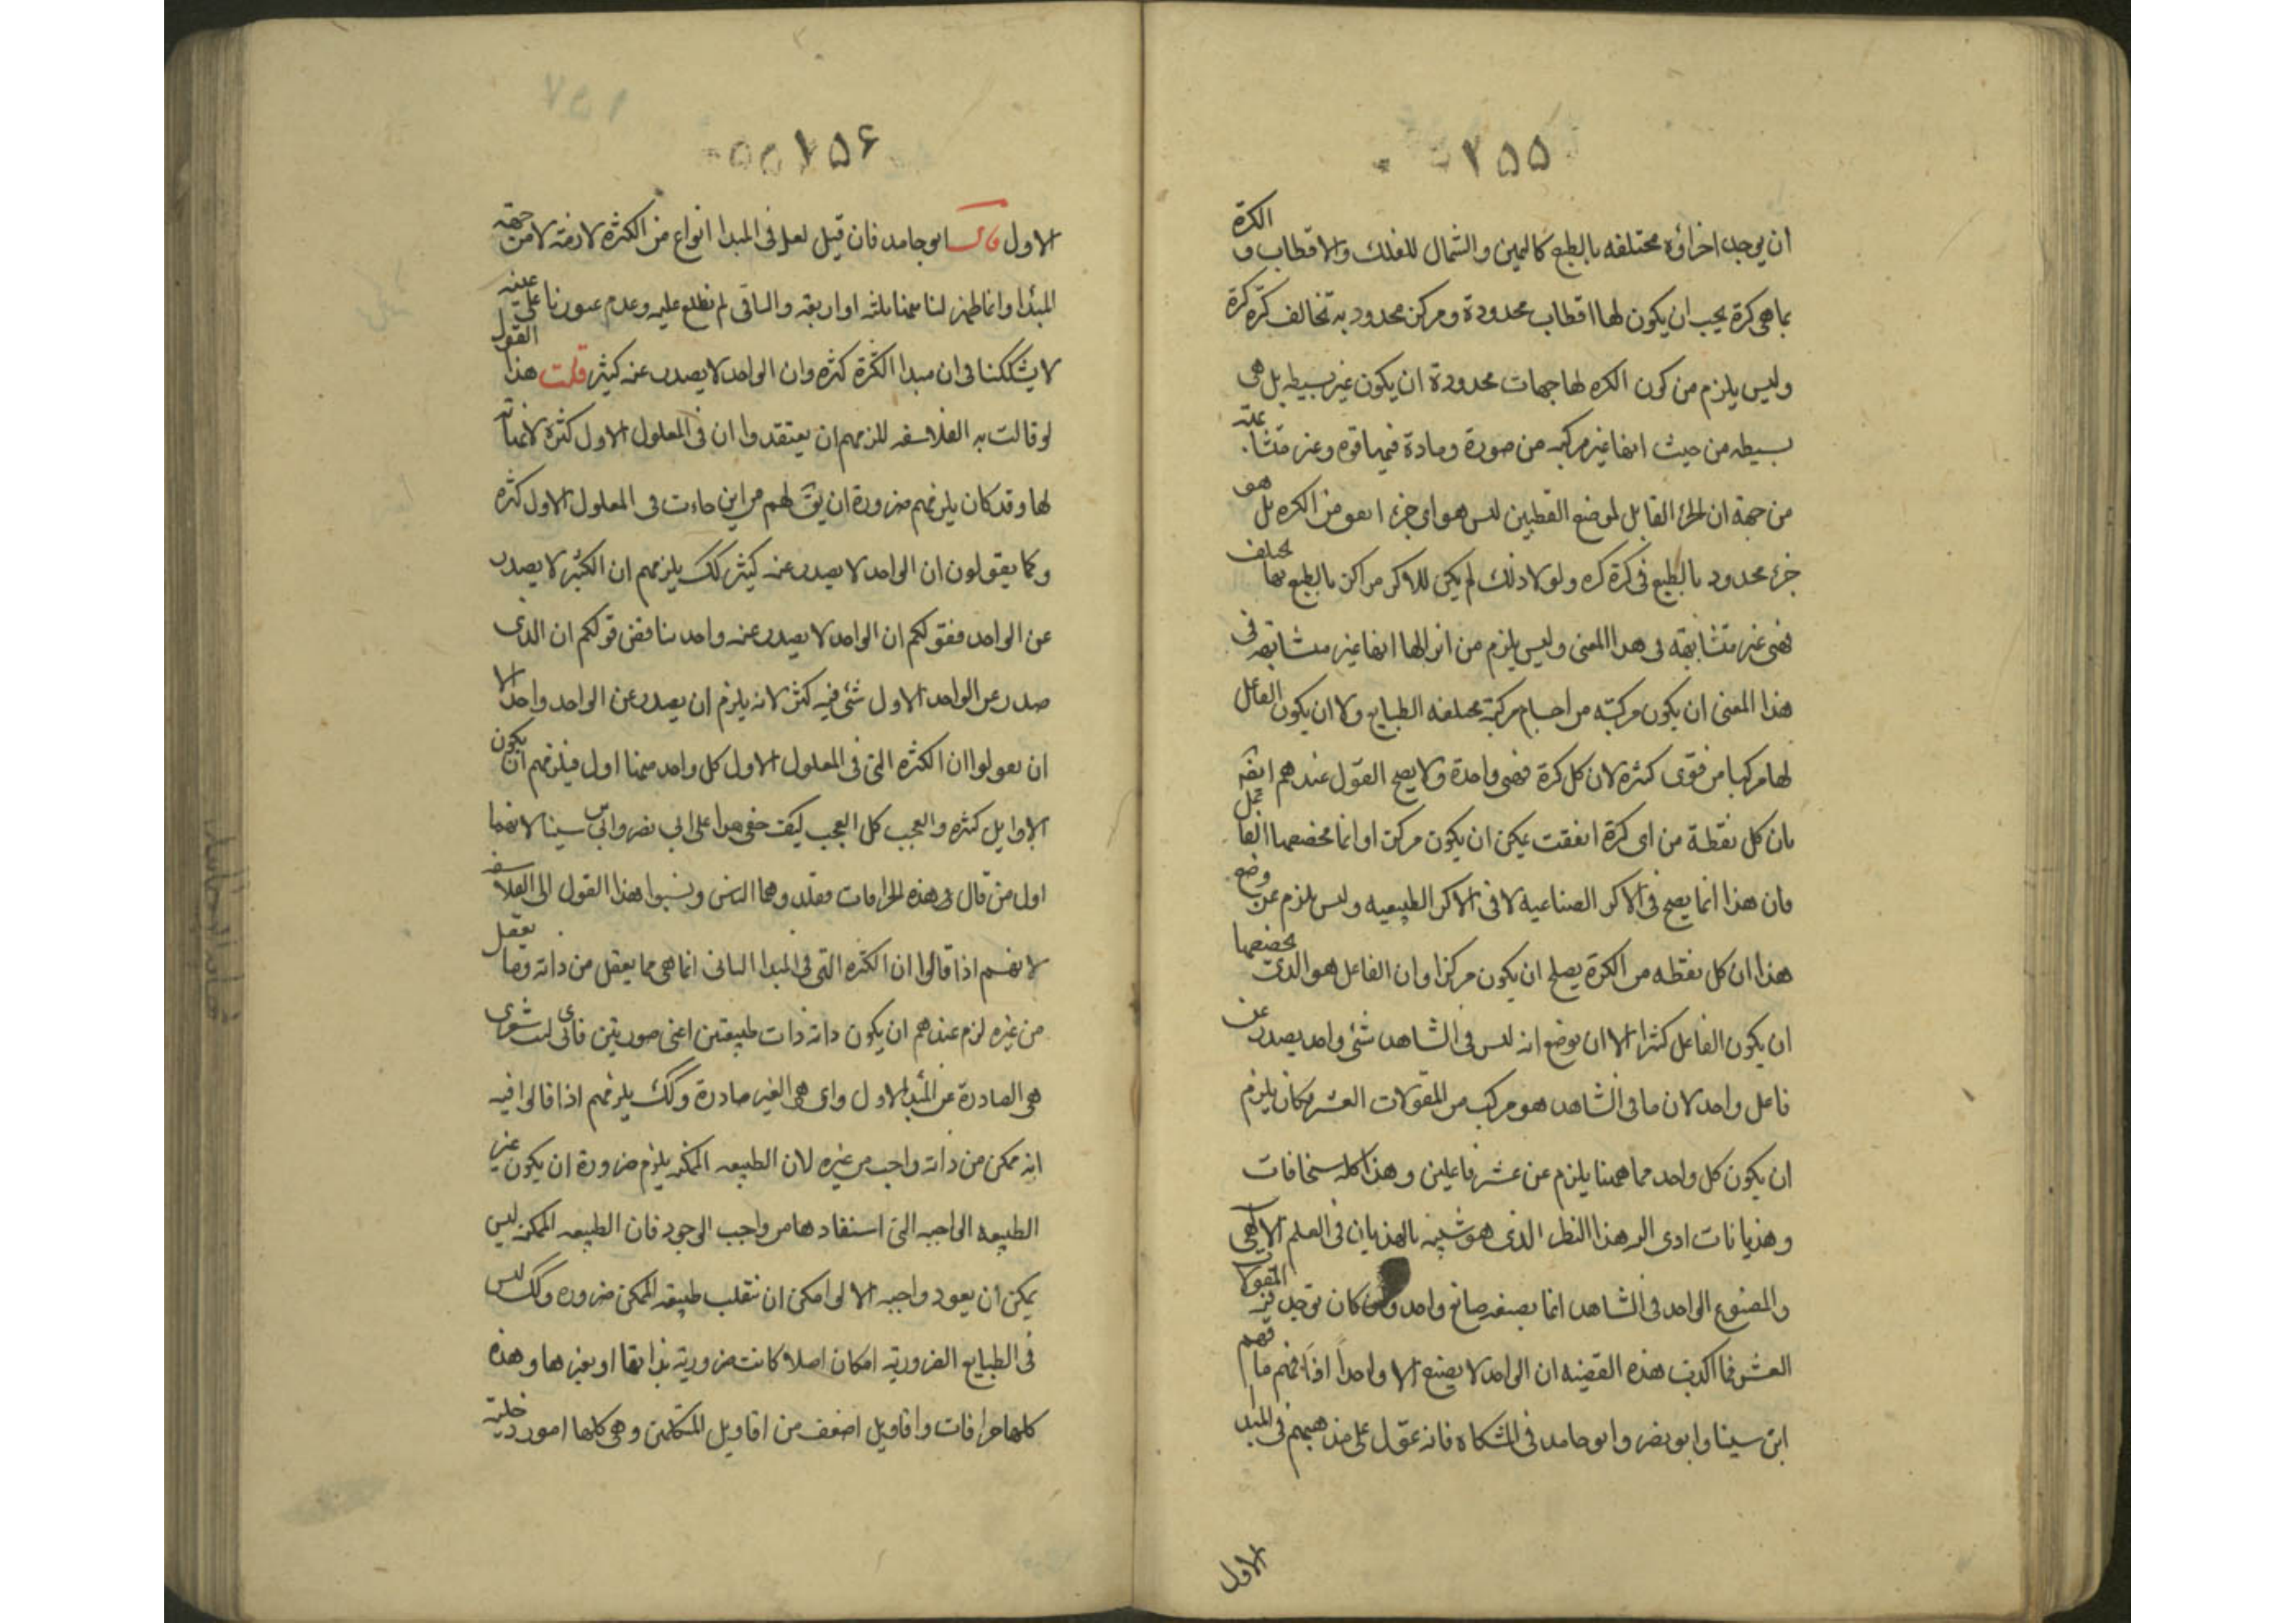 ٢٥٥
ان يوجد اجزاؤه مختلفه بالطبع كاليمين والشمال للفلك والاقطاب و الكرة
بما هى كرة يجب ان يكون لها اقطاب محدودة ومركز محدود به تخالف كرة كرة
وليس يلزم من كون الكره لها جهات محدودة ان يكون غير بسيطه بل هى
بسيطه من حيث انها غير مركبه من صورة ومادة فيها قوه وغير متشابهة
من جهة ان الجزء القابل لموضع القطبين ليس هو اى جزء اتفق من الكره بل هو
جزء محدود بالطبع فى كرة كره ولولا ذلك لم يكن للاكر مراكز بالطبع بها تختلف
فهى غير متشابهة فى هذا المعنى وليس يلزم من انزالها انها غير متشابهة فى
هذا المعنى ان يكون مركبه من اجسام مركبة مختلفه الطبايع ولا ان يكون الفاعل
لها مركبا من قوى كثيره لان كل كرة فهى واحدة ولا يصح القول عندهم ايضا
بان كل نقطة من اى كرة اتفقت يمكن ان يكون مركزا وانما يخصصها الفاعل
فان هذا انما يصح فى الاكر الصناعيه لا فى الاكر الطبيعيه وليس يلزم عن وضع
هذا ان كل نقطه من الكرة يصلح ان يكون مركزا وان الفاعل هو الذى يخصصها
ان يكون الفاعل كثيرا الا ان يوضع انه ليس فى الشاهد شئ واحد يصدر عن
فاعل واحد لان ما فى الشاهد هو مركب من المقولات العشر فكان يلزم
ان يكون كل واحد مما ههنا يلزم عن عشر فاعلين وهذا كله سخافات
وهذيانات ادى اليه هذا النظر الذى هو شبيه بالهذيان فى العلم الالهى
والمصنوع الواحد فى الشاهد انما يصنعه صانع واحد وان كان يوجد فيه المقولات
العشر فما اكذب هذه القضيه ان الواحد لا يصنع الا واحداً اذا فهم ما فهم
ابن سينا وابو نصر وابو حامد فى المشكاه فانه عول على مذهبهم فى المبدا
الاول
١٥٦
الاول قال ابو حامد فان قيل لعل فى المبدا انواع من الكثره لازمة لا من جهة
المبدا وانما ظهر لنا منها ثلثه او اربعة والباقى لم نطلع عليه وعدم عثورنا على عينه
لا يشككنا فى ان مبدا الكثرة كثره وان الواحد لا يصدر عنه كثير قلت هذا القول
لو قالت به الفلاسفه للزمهم ان يعتقدوا ان فى المعلول الاول كثرة لا نهاية
لها وقد كان يلزمهم ضرورة ان يق لهم من اين جاءت فى المعلول الاول كثره
وكما يقولون ان الواحد لا يصدر عنه كثير كك يلزمهم ان الكثير لا يصدر
عن الواحد فقولكم ان الواحد لا يصدر عنه واحد يناقض قولكم ان الذى
صدر عن الواحد الاول شئ فيه كثره لانه يلزم ان يصدر عن الواحد واحد الا
ان يقولوا ان الكثره التى فى المعلول الاول كل واحد منها اول فيلزمهم ان يكون
الاوايل كثيره والعجب كل العجب كيف خفى هذا على ابى نصر وابن سينا لانهما
اول من قال فى هذه الخرافات فقلدوهما الناس ونسبوا هذا القول الى الفلاسفه
لانهم اذا قالوا ان الكثره التى فى المبدا الثانى انما هى مما يعقل من ذاته وما يعقل
من غيره لزم عندهم ان يكون ذاته ذات طبيعتين اعنى صورتين فاى ليت شعرى
هى الصادرة عن المبدا الاول واى هى الغير صادرة وكك يلزمهم اذا قالوا فيه
انه ممكن من ذاته واجب من غيره لان الطبيعه الممكنه يلزم ضرورة ان يكون غير
الطبيعه الواجبه التى استفادها من واجب الوجود فان الطبيعه الممكنه ليس
يمكن ان يعود واجبه الا لو امكن ان تنقلب طبيعه الممكن ضروره وكك ليس
فى الطبايع الضرورية امكان اصلا كانت ضرورية بذاتها او بغيرها وهذه
كلها خرافات واقاويل اضعف من اقاويل المتكلمين وهى كلها امور دخيلة